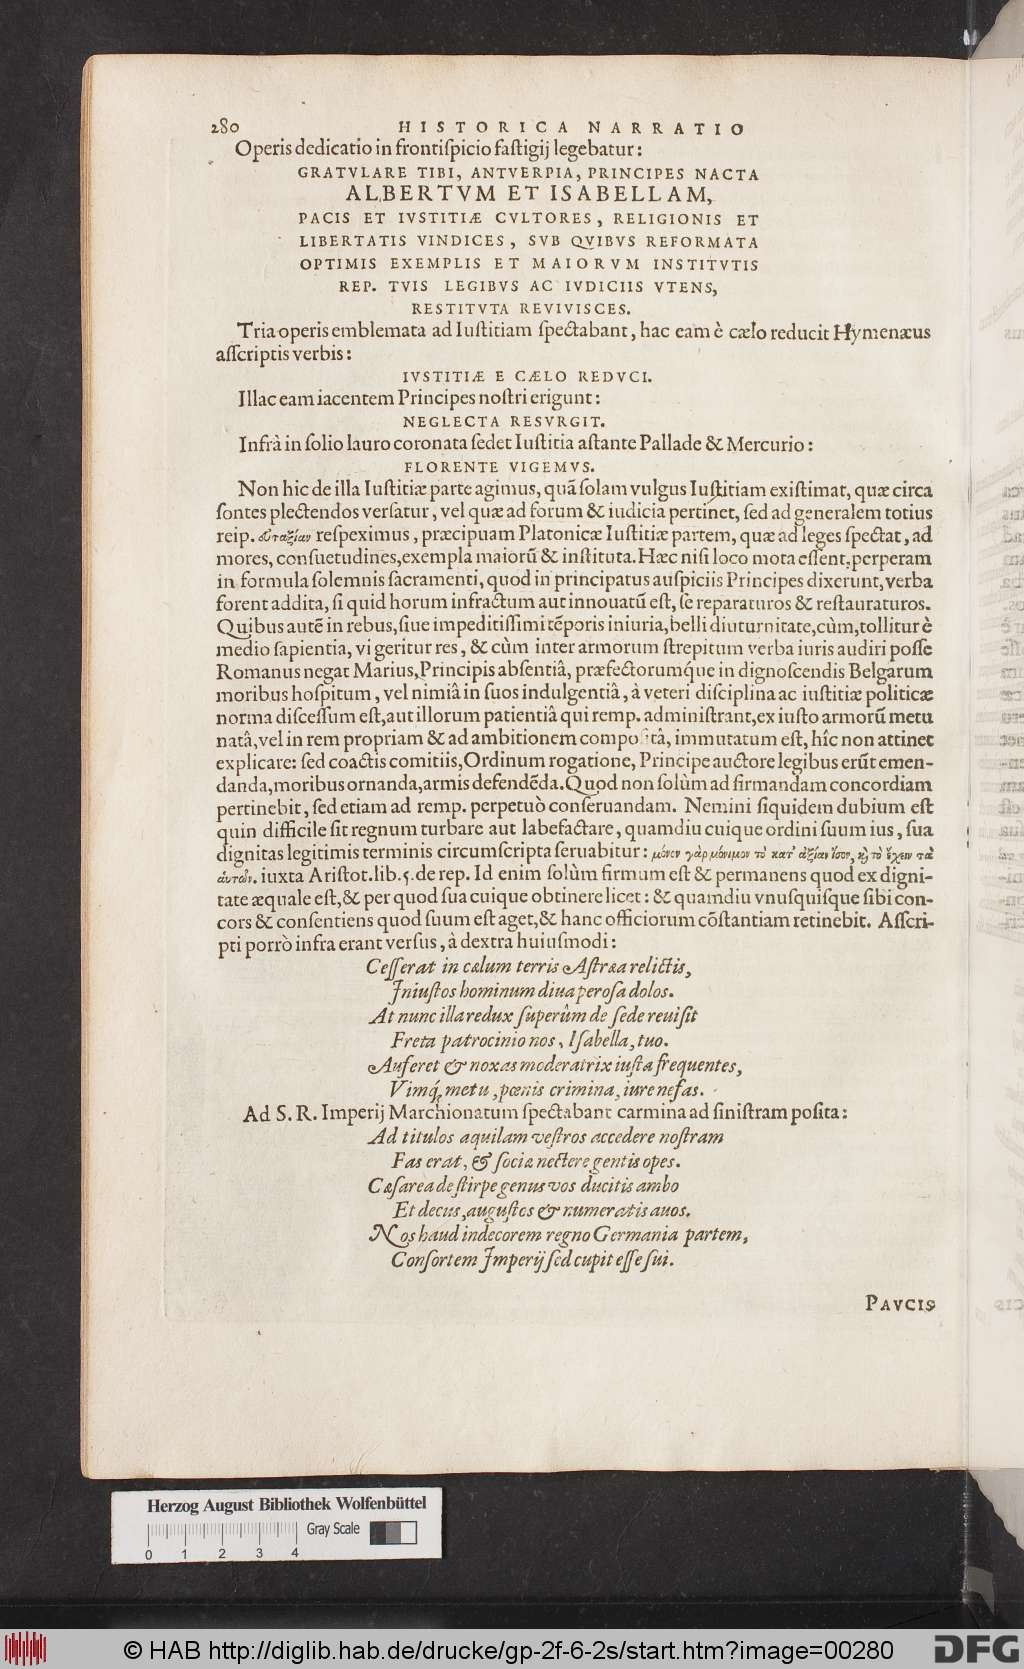 280 HISTORICA NARRATIO
Operis dedicatio in frontiſpicio faſtigij legebatur:
GRATVLARE TIBI, ANTVERPIA, PRINCIPES NACTA
ALBERTVM ET ISABELLAM,
PACIS ET IVSTITIÆ CVLTORES, RELIGIONIS ET
LIBERTATIS VINDICES, SVB QVIBVS REFORMATA
OPTIMIS EXEMPLIS ET MAIORVM INSTITVTIS
REP. TVIS LEGIBVS AC IVDICIIS VTENS,
RESTITVTA REVIVISCES.
Tria operis emblemata ad Iuſtitiam ſpectabant, hac eam è cælo reducit Hymenæus
aſſcriptis verbis:
IVSTITIÆ E CÆLO REDVCI.
Illac eam iacentem Principes noſtri erigunt:
NEGLECTA RESVRGIT.
Infrà in ſolio lauro coronata ſedet Iuſtitia aſtante Pallade & Mercurio:
FLORENTE VIGEMVS.
Non hic de illa Iuſtitiæ parte agimus, quā ſolam vulgus Iuſtitiam existimat, quæ circa
ſontes plectendos verſatur, vel quæ ad forum & iudicia pertinet, ſed ad generalem totius
reip. εὐταξίαν reſpeximus, præcipuam Platonicæ Iuſtitiæ partem, quæ ad leges ſpectat, ad
mores, conſuetudines, exempla maiorū & inſtituta. Hæc niſi loco mota eſſent, perperam
in formula ſolemnis ſacramenti, quod in principatus auſpiciis Principes dixerunt, verba
forent addita, ſi quid horum infractum aut innouatū eſt, ſe reparaturos & reſtauraturos.
Quibus autē in rebus, ſiue impeditiſſimi tēporis iniuria, belli diuturnitate, cùm, tollitur è
medio ſapientia, vi geritur res, & cùm inter armorum ſtrepitum verba iuris audiri poſſe
Romanus negat Marius, Principis abſentiâ, præfectorumq́ue in dignoſcendis Belgarum
moribus hoſpitum, vel nimiâ in ſuos indulgentiâ, à veteri diſciplina ac iuſtitiæ politicæ
norma diſceſſum eſt, aut illorum patientiâ qui remp. adminiſtrant, ex iuſto armorū metu
natâ, vel in rem propriam & ad ambitionem compoſitâ, immutatum eſt, hîc non attinet
explicare: ſed coactis comitiis, Ordinum rogatione, Principe auctore legibus erūt emen-
danda, moribus ornanda, armis defendēda. Quod non ſolùm ad firmandam concordiam
pertinebit, ſed etiam ad remp. perpetuò conſeruandam. Nemini ſiquidem dubium eſt
quin difficile ſit regnum turbare aut labefactare, quamdiu cuique ordini ſuum ius, ſua
dignitas legitimis terminis circumſcripta ſeruabitur: μόνον γὰρ μόνιμον τὸ κατ' ἀξίαν ἴσον, κὶ τὸ ἔχειν τὰ
αὑτῶν. iuxta Ariſtot. lib. 5. de rep. Id enim ſolùm firmum eſt & permanens quod ex digni-
tate æquale eſt, & per quod ſua cuique obtinere licet: & quamdiu vnuſquiſque ſibi con-
cors & conſentiens quod ſuum eſt aget, & hanc officiorum cōſtantiam retinebit. Aſſcri-
pti porrò infra erant verſus, à dextra huiuſmodi:
Ceſſerat in cælum terris Aſtræa relictis,
Iniuſtos hominum diua peroſa dolos.
At nunc illa redux ſuperûm de ſede reuiſit
Freta patrocinio nos, Iſabella, tuo.
Auferet & noxas moderatrix iuſta frequentes,
Vimq́; metu, pœnis crimina, iure nefas.
Ad S. R. Imperij Marchionatum ſpectabant carmina ad ſiniſtram poſita:
Ad titulos aquilam veſtros accedere noſtram
Fas erat, & ſociæ nectere gentis opes.
Cæſarea de ſtirpe genus vos ducitis ambo
Et decus, auguſtos & numeratis auos.
Nos haud indecorem regno Germania partem,
Conſortem Imperij ſed cupit eſſe ſui.
PAVCIS
Herzog August Bibliothek Wolfenbüttel
Gray Scale
0 1 2 3 4
© HAB http://diglib.hab.de/drucke/gp-2f-6-2s/start.htm?image=00280
DFG